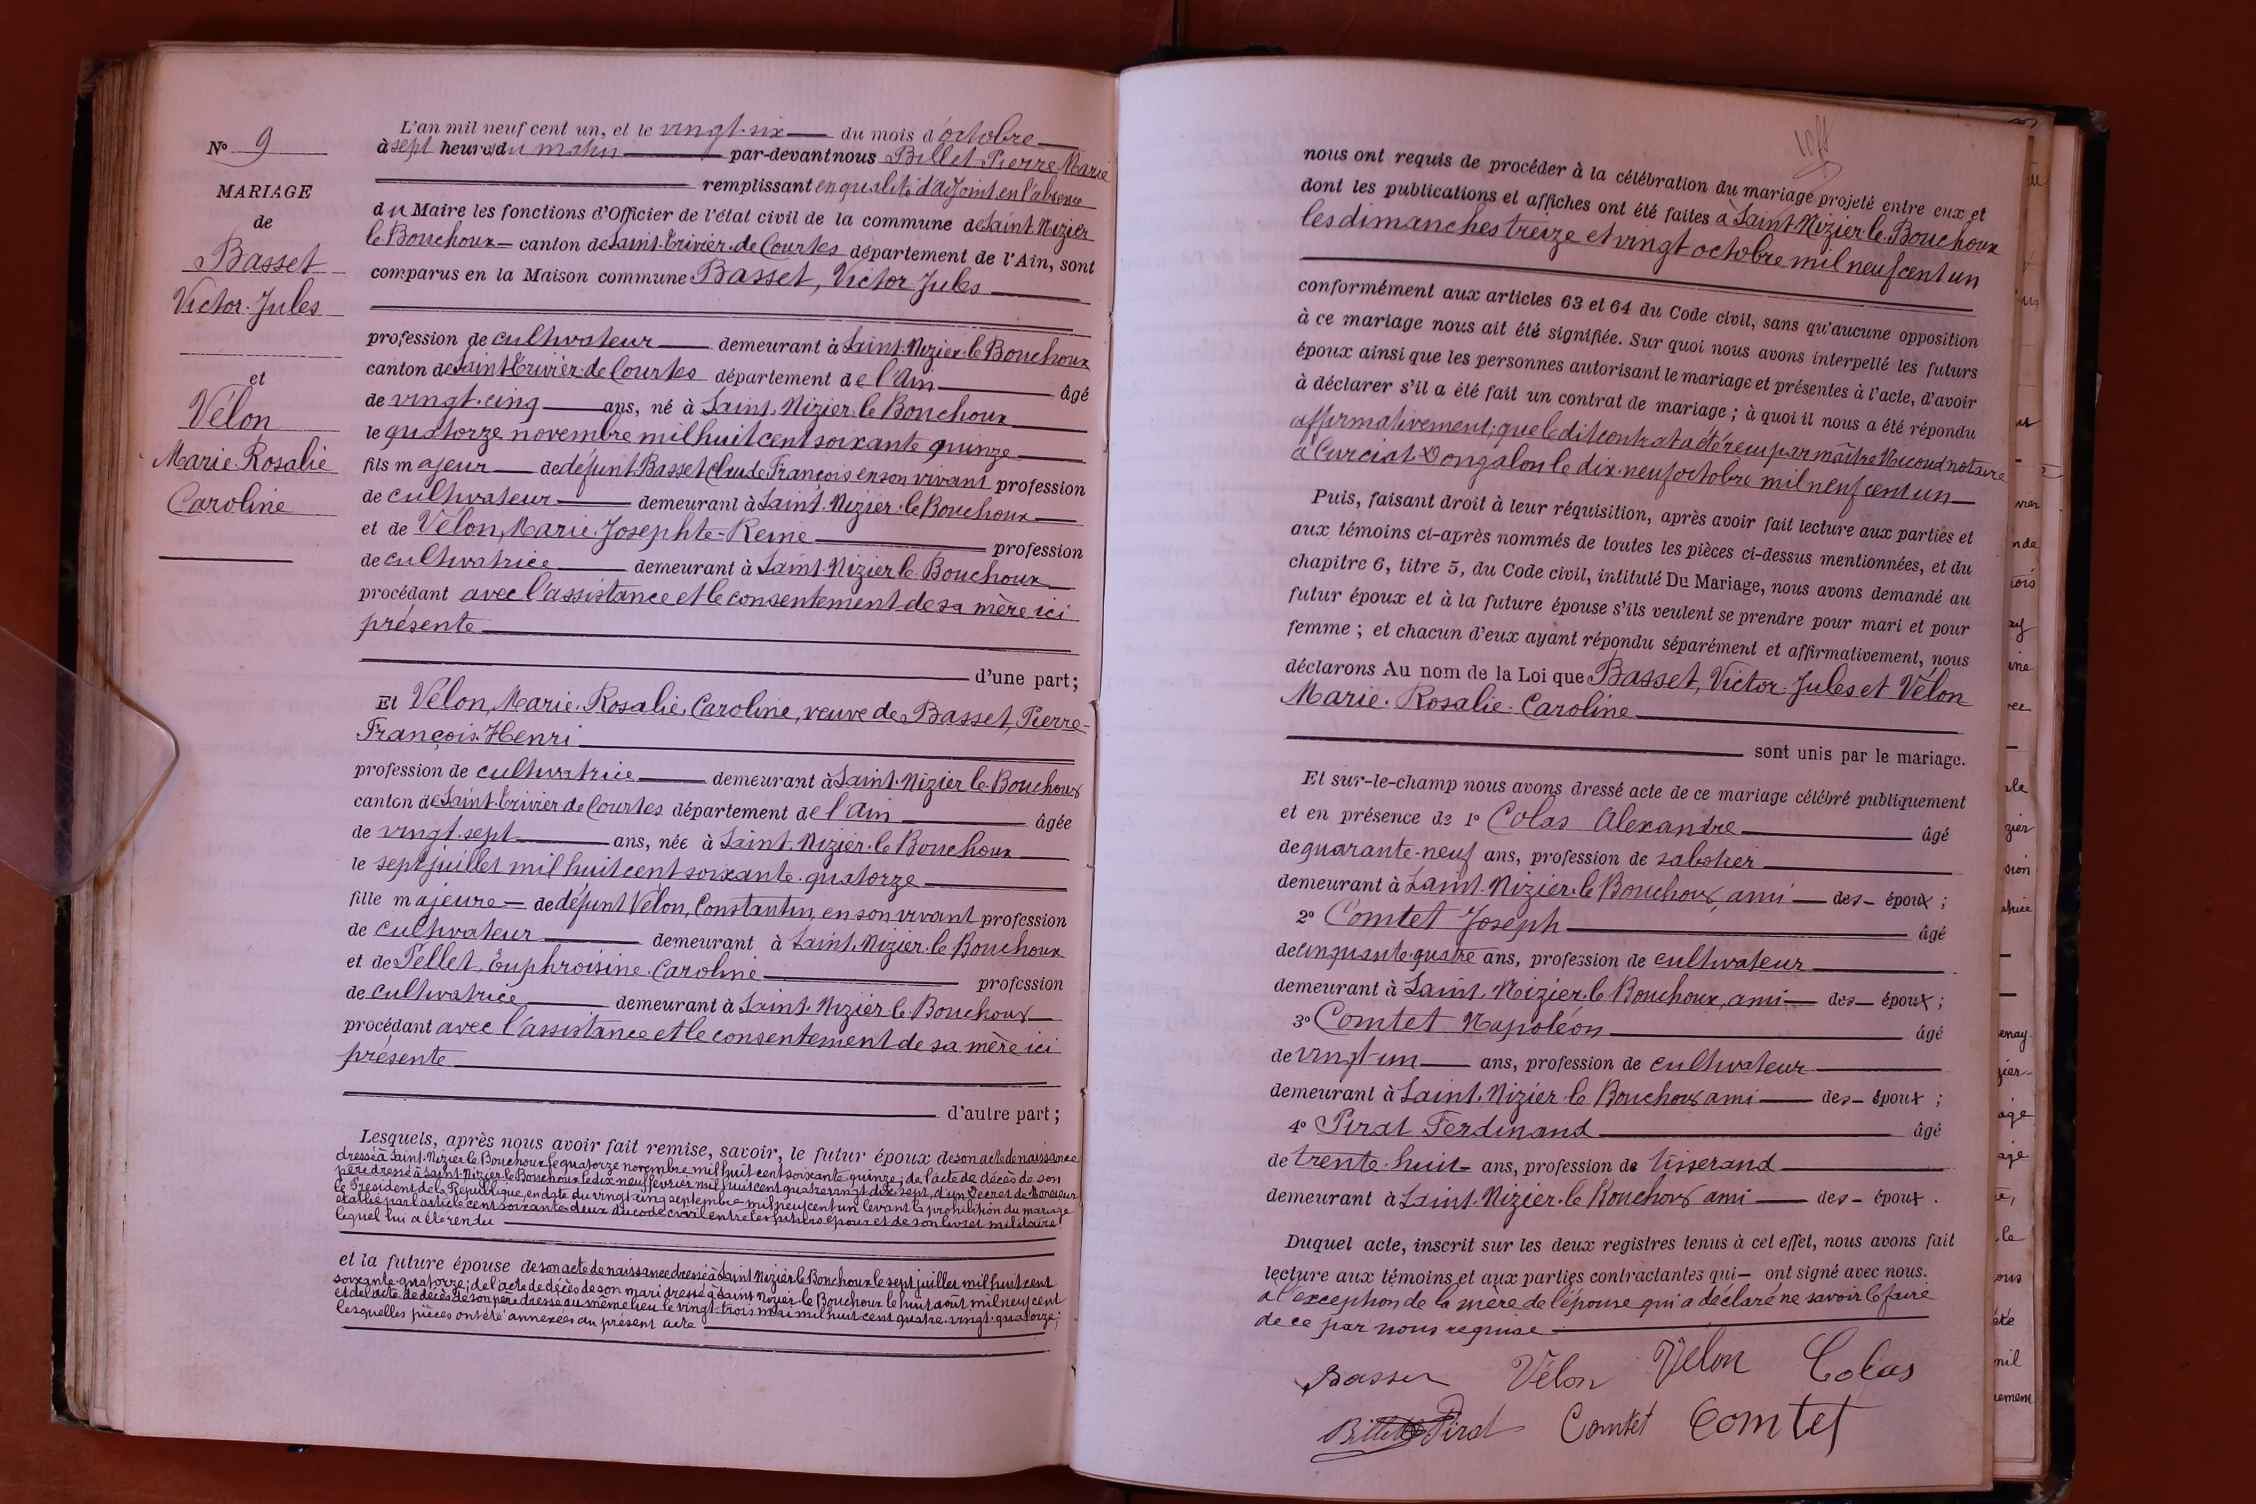 N° 9
MARIAGE
de
Basset
Victor Jules
et
Vélon
Marie Rosalie
Caroline
L'an mil neuf cent un, et le vingt-six du mois d'octobre
à sept heures du matin par-devant nous Billet Pierre Marie
remplissant en qualité d'adjoint en l'absence
du Maire les fonctions d'Officier de l'état civil de la commune de Saint-Nizier
le Bouchoux canton de Saint-Trivier-de-Courtes département de l'Ain, sont
comparus en la Maison commune Basset, Victor Jules
profession de cultivateur demeurant à Saint-Nizier-le-Bouchoux
canton de Saint-Trivier-de-Courtes département de l'Ain âgé
de vingt-cinq ans, né à Saint-Nizier-le-Bouchoux
le quatorze novembre mil huit cent soixante quinze
fils majeur de défunt Basset Claude François en son vivant profession
de cultivateur demeurant à Saint-Nizier-le-Bouchoux
et de Vélon, Marie Josephte-Reine profession
de cultivatrice demeurant à Saint-Nizier-le-Bouchoux
procédant avec l'assistance et le consentement de sa mère ici
présente
d'une part;
Et Vélon, Marie Rosalie Caroline, veuve de Basset, Pierre-
François Henri
profession de cultivatrice demeurant à Saint-Nizier le Bouchoux
canton de Saint-Trivier de Courtes département de l'Ain âgée
de vingt-sept ans, née à Saint-Nizier-le-Bouchoux
le sept juillet mil huit cent soixante-quatorze
fille majeure de défunt Vélon, Constantin, en son vivant profession
de cultivateur demeurant à Saint-Nizier-le-Bouchoux
et de Pellet, Euphroisine Caroline profession
de cultivatrice demeurant à Saint-Nizier-le-Bouchoux
procédant avec l'assistance et le consentement de sa mère ici
présente
d'autre part;
Lesquels, après nous avoir fait remise, savoir, le futur époux de son acte de naissance
dressé à Saint-Nizier le Bouchoux le quatorze novembre mil huit cent soixante-quinze; de l'acte de décès de son
père dressé à Saint-Nizier-le-Bouchoux le dix-neuf février mil huit cent quatre vingt dix sept, d'un Décret de Monsieur
le Président de la République, en date du vingt-cinq septembre mil neuf cent un levant la prohibition du mariage
établie par l'article cent soixante-deux du code civil entre les futurs époux et de son livret militaire
lequel lui a été rendu
et la future épouse de son acte de naissance dressé à Saint Nizier le Bouchoux le sept juillet mil huit cent
soixante-quatorze; de l'acte de décès de son mari dressé à Saint Nizier-le Bouchoux le huit août mil neuf cent
et de l'acte de décès de son père dressé au même lieu le vingt-trois mai mil huit cent quatre-vingt-quatorze;
lesquelles pièces ont été annexées au présent acte
nous ont requis de procéder à la célébration du mariage projeté entre eux et
dont les publications et affiches ont été faites à Saint-Nizier-le-Bouchoux
les dimanches treize et vingt octobre mil neuf cent un
conformément aux articles 63 et 64 du Code civil, sans qu'aucune opposition
à ce mariage nous ait été signifiée. Sur quoi nous avons interpellé les futurs
époux ainsi que les personnes autorisant le mariage et présentes à l'acte, d'avoir
à déclarer s'il a été fait un contrat de mariage; à quoi il nous a été répondu
affirmativement; que le dit contrat a été reçu par maître Nicoud notaire
à Curciat-Dongalon le dix-neuf octobre mil neuf cent un
Puis, faisant droit à leur réquisition, après avoir fait lecture aux parties et
aux témoins ci-après nommés de toutes les pièces ci-dessus mentionnées, et du
chapitre 6, titre 5, du Code civil, intitulé Du Mariage, nous avons demandé au
futur époux et à la future épouse s'ils veulent se prendre pour mari et pour
femme; et chacun d'eux ayant répondu séparément et affirmativement, nous
déclarons Au nom de la Loi que Basset, Victor Jules et Vélon
Marie Rosalie Caroline
sont unis par le mariage.
Et sur-le-champ nous avons dressé acte de ce mariage célébré publiquement
et en présence de 1° Colas Alexandre âgé
de quarante-neuf ans, profession de sabotier
demeurant à Saint-Nizier-le Bouchoux, ami des époux;
2° Comtet Joseph âgé
de cinquante-quatre ans, profession de cultivateur
demeurant à Saint-Nizier-le Bouchoux, ami des époux;
3° Comtet Napoléon âgé
de vingt-un ans, profession de cultivateur
demeurant à Saint-Nizier-le Bouchoux ami des époux;
4° Pirat Ferdinand âgé
de trente-huit ans, profession de tisserand
demeurant à Saint-Nizier-le Bouchoux ami des époux.
Duquel acte, inscrit sur les deux registres tenus à cet effet, nous avons fait
lecture aux témoins et aux parties contractantes qui ont signé avec nous.
à l'exception de la mère de l'épouse qui a déclaré ne savoir le faire
de ce par nous requise
Basset Vélon Vélon Colas
Billet Pirat Comtet Comtet